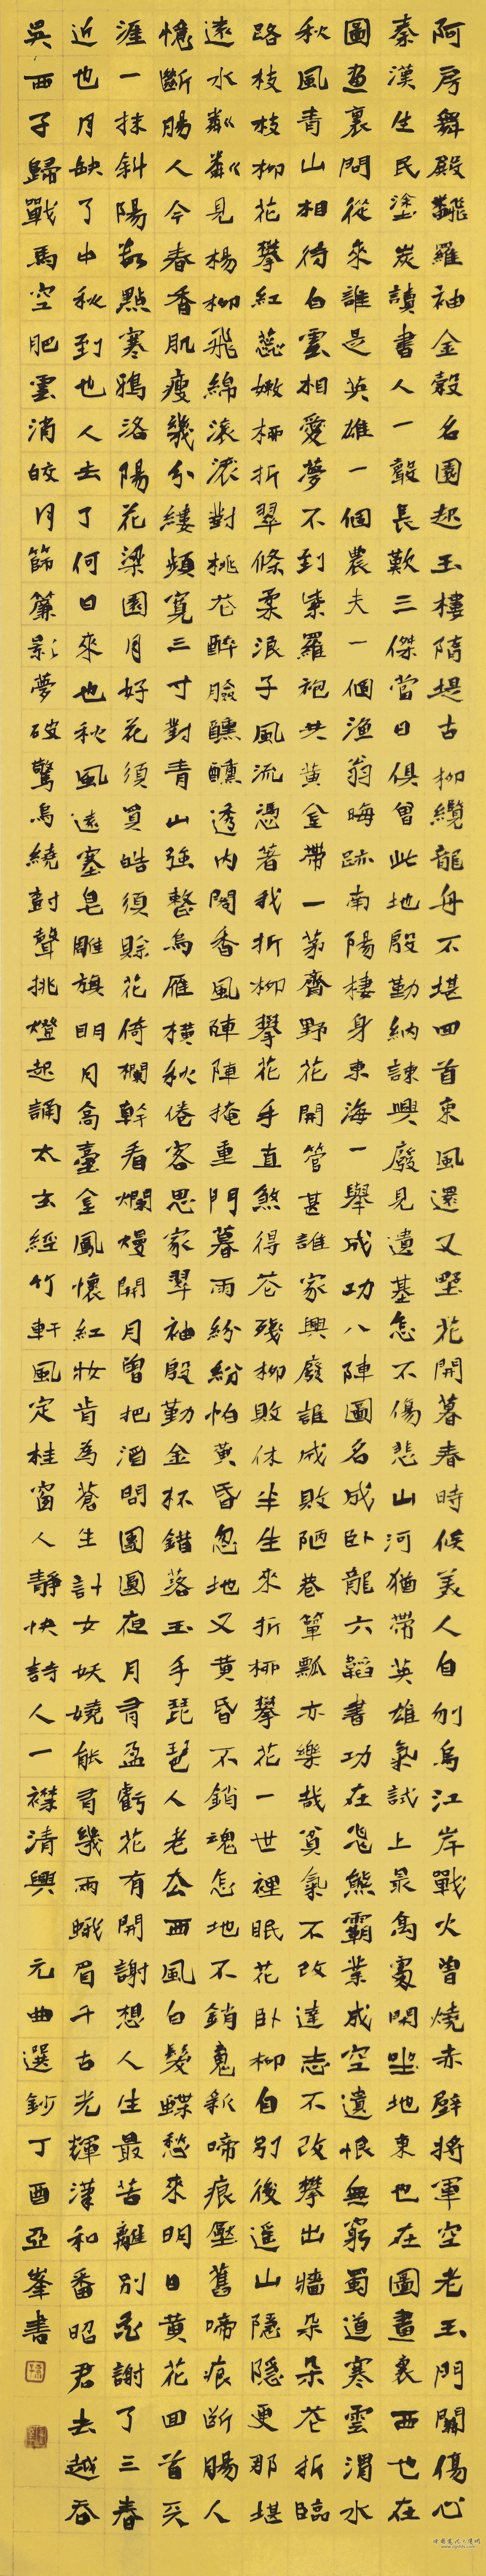 阿房舞殿翻羅袖金穀名園起玉樓隋堤古柳纜龍舟不堪回首東風還又野花開暮春時候美人自刎烏江岸戰火曾燒赤壁將軍空老玉門關傷心
秦漢生民塗炭讀書人一聲長歎三傑當日俱曾此地殷勤納諫興廢見遺基怎不傷悲山河猶帶英雄氣試上最高處閑坐地東也在圖畫裏西也在
圖畫裏問從來誰是英雄一個農夫一個漁翁晦跡南陽棲身東海一舉成功八陣圖名成卧龍六韜書功在飛熊霸業成空遺恨無窮蜀道寒雲渭水
秋風青山相待白雲相愛夢不到紫羅袍共黃金帶一茅齋野花開管甚誰家興廢誰成敗陋巷簞瓢亦樂哉貧氣不改達志不改攀出牆朵朵花折臨
路枝枝柳花攀紅蕊嫩柳折翠條柔浪子風流憑著我折柳攀花手直煞得花殘柳敗休半生來折柳攀花一世裡眠花卧柳自別後遥山隱隱更那堪
遠水粼粼見楊柳飛綿滾滾對桃花醉臉醺醺透內閣香風陣陣掩重門暮雨紛紛怕黃昏忽地又黃昏不銷魂怎地不銷魂新啼痕壓舊啼痕斷腸人
憶斷腸人今春香肌瘦幾分縷頻寬三寸對青山強整烏雁橫秋倦客思家翠袖殷勤金杯錯落玉手琵琶人老去西風白髮蝶愁來明日黃花回首天
涯一抹斜陽數點寒鴉洛陽花梁園月好花須買皓須賒花倚欄幹看爛熳開月曾把酒問團圓夜月有盈虧花有開謝想人生最苦離別花謝了三春
近也月缺了中秋到也人去了何日來也秋風遠塞皂雕旗明月高臺金鳳懷紅妝肯為蒼生計女妖嬈能有幾兩蛾眉千古光輝漢和番昭君去越吞
吳西子歸戰馬空肥雲消皎月篩簾影夢破驚烏繞樹聲挑燈起誦太玄經竹軒風定桂窗人靜快詩人一襟清興 元曲選鈔丁酉亞峯書